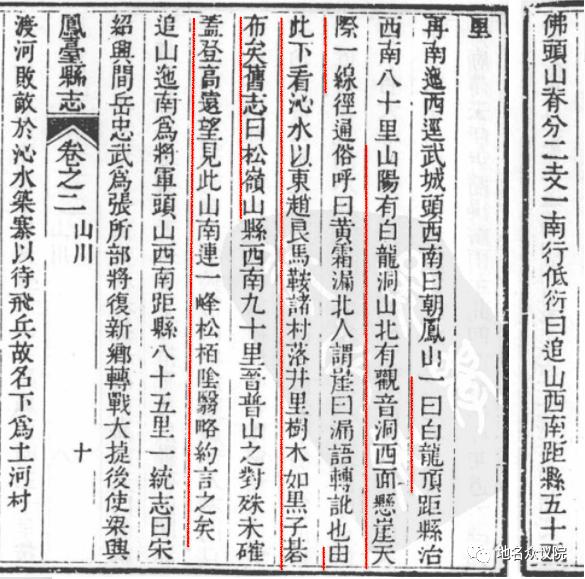 佛頭山脊分二支一南行低衍曰追山西南距縣五十
里
再南迤西逕武城頭西南曰朝鳳山一曰白龍頂距縣治
西南八十里山陽有白龍洞山北有觀音洞西面懸崖天
際一線徑通俗呼曰黃霜漏北人謂崖曰漏語轉訛也由
此下看沁水以東趙良馬鞍諸村落井里樹木如黑子碁
布矣舊志曰松嶺山縣西南九十里晉普山之對殊未確
蓋登高遠望見此山南連一峰松栢陰翳略約言之矣
追山迤南爲將軍頭山西南距縣八十五里一統志曰宋
紹興間岳忠武爲張所部將復新鄉轉戰大捷後使梁興
鳳臺縣志 卷之二 山川 十
渡河敗敵於沁水築寨以待飛兵故名下爲土河村
地名众议院